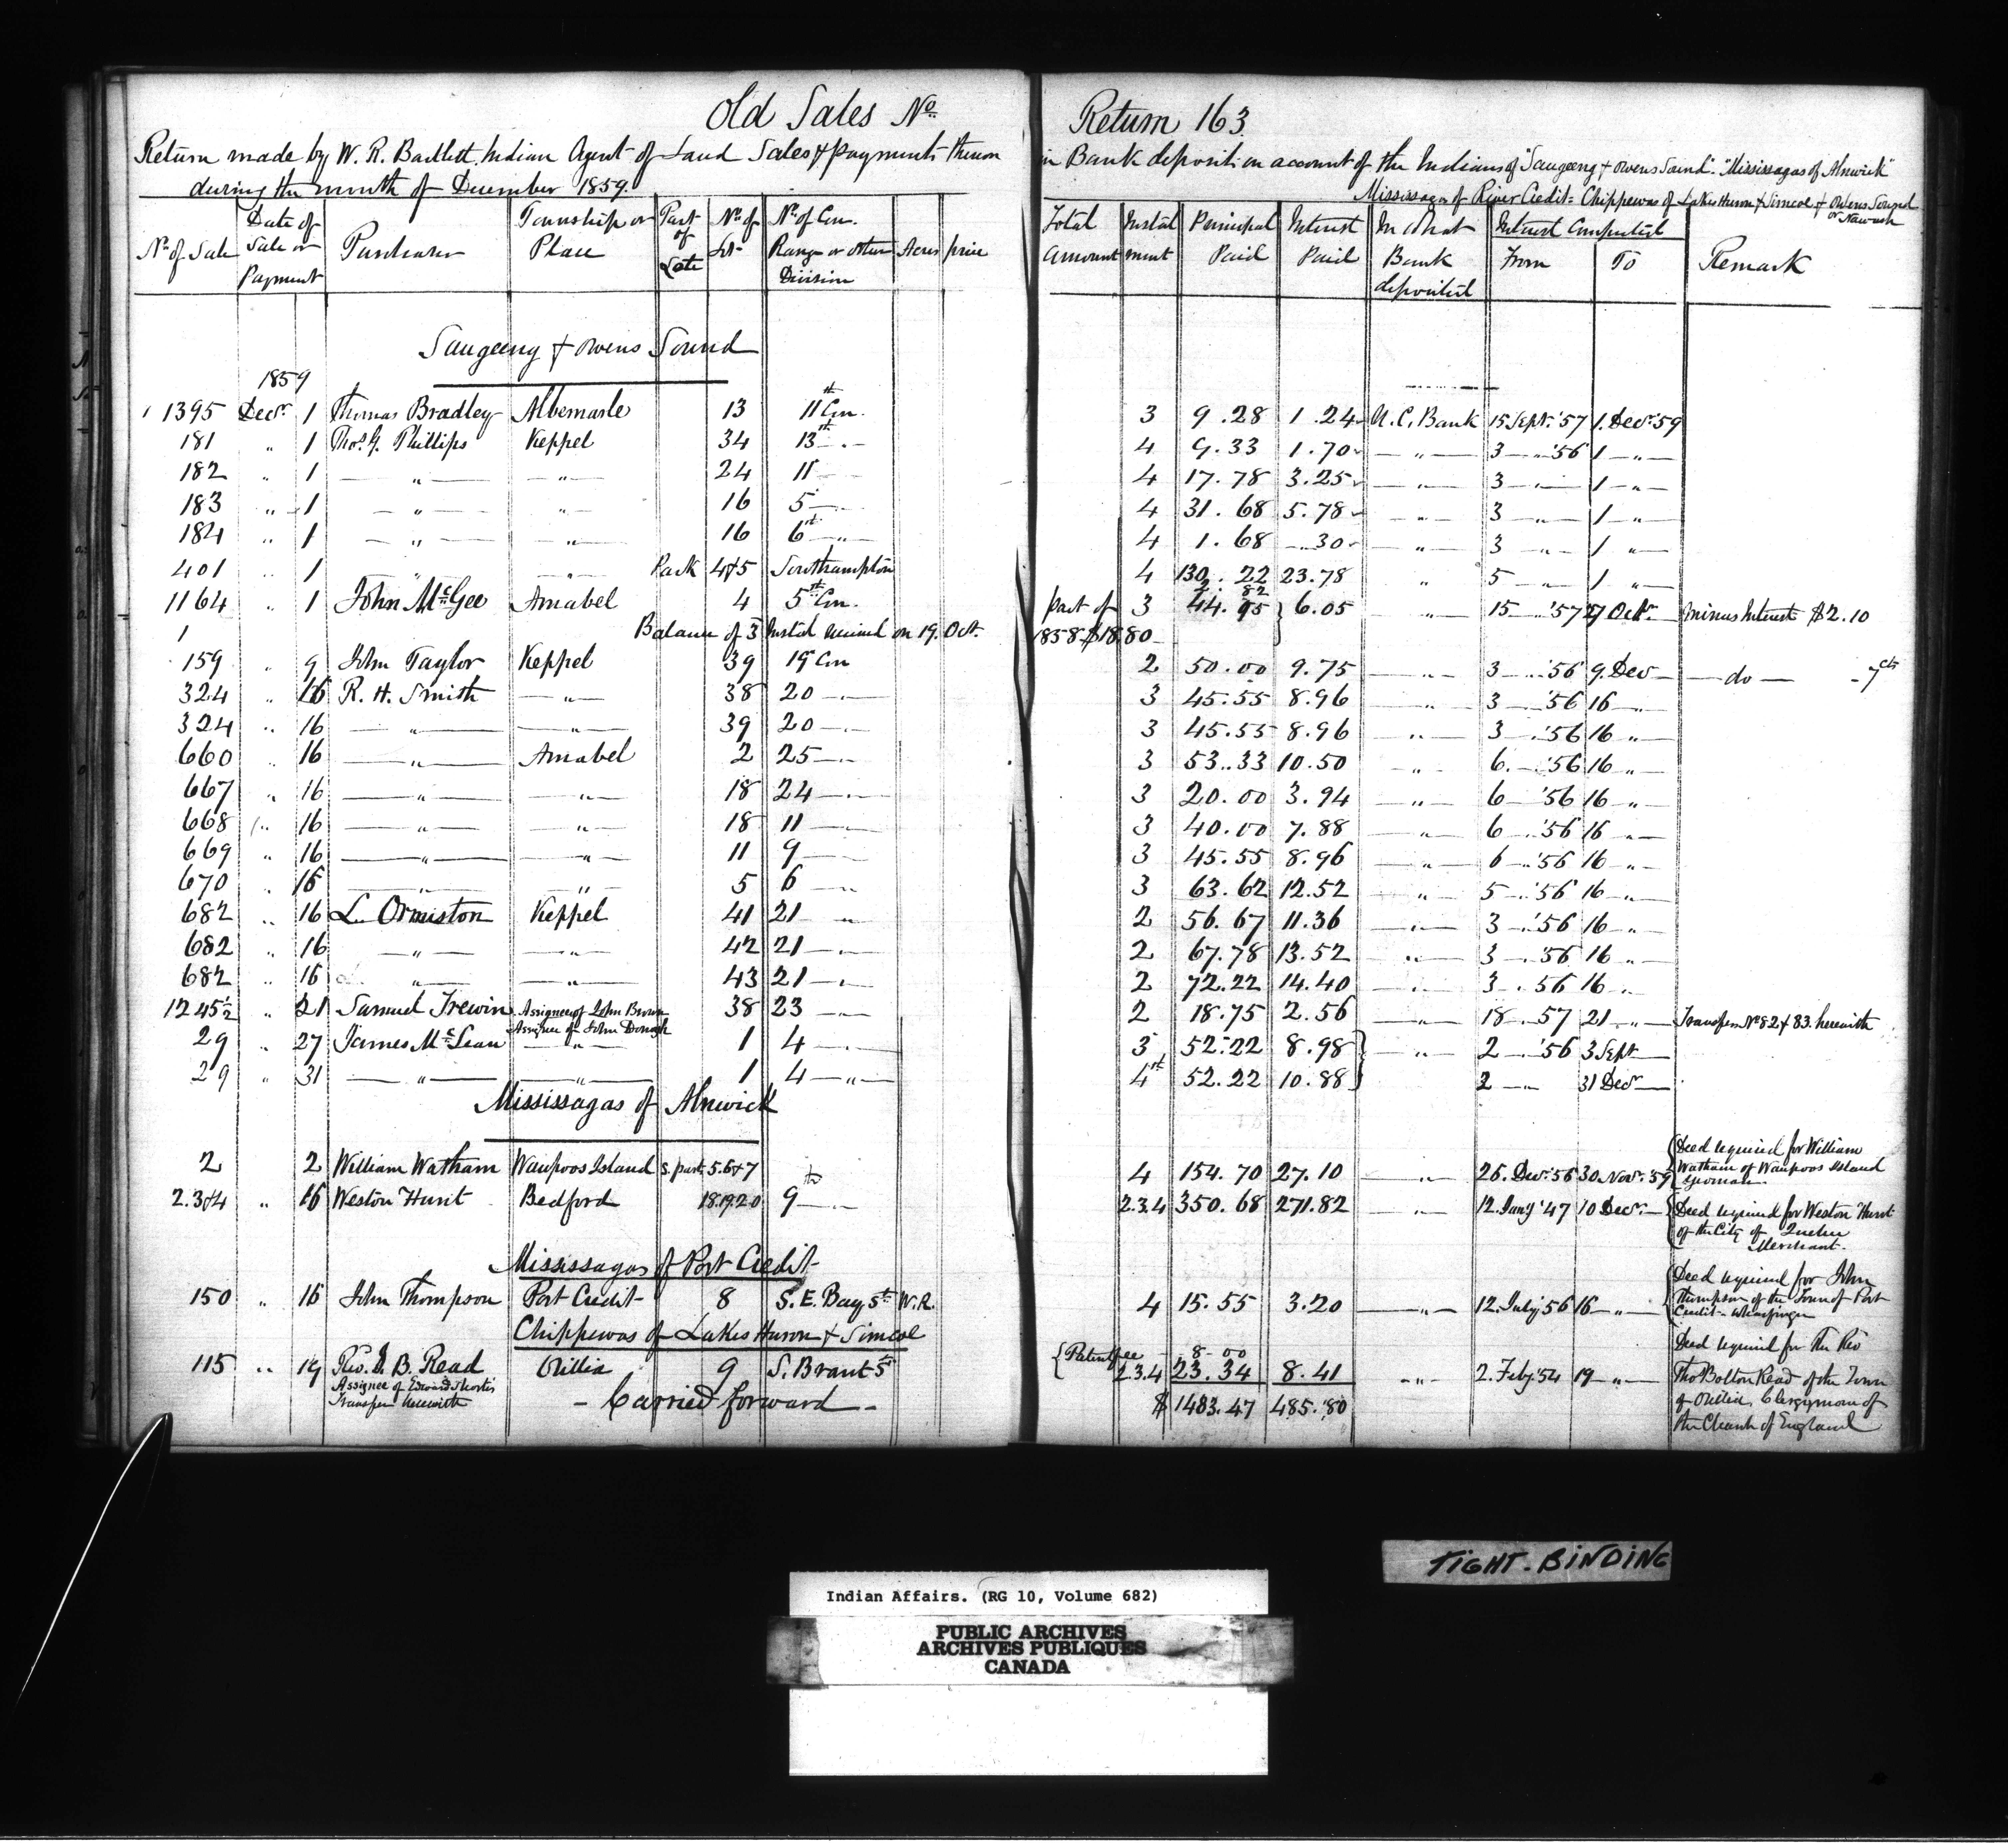 Old Sales No Return 163
Return made by W. R. Bartlett Indian Agent of Land Sales & payments thereon in Bank deposit on account of the Indians of "Saugeeng & Owens Sound". "Mississagas of Alnwick"
during the month of December 1859. Mississagas of River Credit = Chippewas of Lakes Huron & Simcoe & Owens Sound or Nawash
No of Sale | Date of Sale or Payment | Purchaser | Township or Place | Part of Lots | No of Lot | No of Con. Range or other Division | Acres | price | Total Amount | Instalment | Principal Paid | Interest Paid | In what Bank deposited | Interest Computed From | To | Remark
Saugeeng & Owens Sound
1859
1395 Decr 1 Thomas Bradley Albemarle 13 11th Con. 3 9.28 1.24 U.C. Bank 15 Sept. '57 1. Decr '59
181 " 1 Thos G. Phillips Keppel 34 13th " 4 9.33 1.70 " 3 " '56 1 "
182 " 1 " " 24 11 " 4 17.78 3.25 " 3 " 1 "
183 " 1 " " 16 5 " 4 31.68 5.78 " 3 " 1 "
184 " 1 " " 16 6th " 4 1.68 .30 " 3 " 1 "
401 " 1 " " Park 4&5 Southampton 4 130.22 23.78 " 5 " 1 "
1164 " 1 John McGee Amabel 4 5th Con. part of 3 44.95 6.05 " 15 " '57 27 Octr minus Interest $2.10
1 Balance of 3 Instal received on 19. Oct. 1858 $18.80
159 " 9 John Taylor Keppel 39 19 Con 2 50.00 9.75 " 3 " '56 9. Dec do 7cts
324 " 16 R. H. Smith " 38 20 " 3 45.55 8.96 " 3 " '56 16 "
324 " 16 " " 39 20 " 3 45.55 8.96 " 3 " '56 16 "
660 " 16 " Amabel 2 25 " 3 53.33 10.50 " 6 " '56 16 "
667 " 16 " " 18 24 " 3 20.00 3.94 " 6 " '56 16 "
668 " 16 " " 18 11 " 3 40.00 7.88 " 6 " '56 16 "
669 " 16 " " 11 9 " 3 45.55 8.96 " 6 " '56 16 "
670 " 16 " " 5 6 " 3 63.62 12.52 " 5 " '56 16 "
682 " 16 L. Ormiston Keppel 41 21 " 2 56.67 11.36 " 3 " '56 16 "
682 " 16 " " 42 21 " 2 67.78 13.52 " 3 " '56 16 "
682 " 16 " " 43 21 " 2 72.22 14.40 " 3 " 56 16 "
1245½ " 21 Samuel Trewin Assignee of John Brown 38 23 " 2 18.75 2.56 " 18 " 57 21 " Transfers No 82 & 83. herewith
Assignee of John Donogh
29 " 27 James McLean " 1 4 " 3 52.22 8.98 " 2 " '56 3 Sept
29 " 31 " " 1 4 " 4th 52.22 10.88 2 " 31 Decr
Mississagas of Alnwick
2 2 William Watham Waupoos Island S. part 5.6&7 4 154.70 27.10 " 26. Decr '56 30. Novr '59 Deed required for William Watham of Waupoos Island Yeoman
2.3&4 " 16 Weston Hunt Bedford 18.19.20 9th " 2.3.4 350.68 271.82 " 12 Jany '47 10 Decr Deed required for Weston Hunt of the City of Quebec Merchant.
Mississagas of Port Credit
150 " 16 John Thompson Port Credit 8 S. E. Bay St W.R. 4 15.55 3.20 " 12. July 56 16 " Deed required for John Thompson of the Town of Port Credit - Wharfinger
Chippewas of Lakes Huron & Simcoe
Patent fee 8.00
115 " 19 Rev. T. B. Read Orillia 9 S. Brant St 2.3.4 23.34 8.41 " 2. Feby 54 19 " Deed required for The Rev Thos Bolton Read of the Town of Orillia, Clergyman of the Church of England
Assignee of Edward
Transfer herewith
- Carried forward - $ 1483.47 485.80
TIGHT. BINDING
Indian Affairs. (RG 10, Volume 682)
PUBLIC ARCHIVES
ARCHIVES PUBLIQUES
CANADA